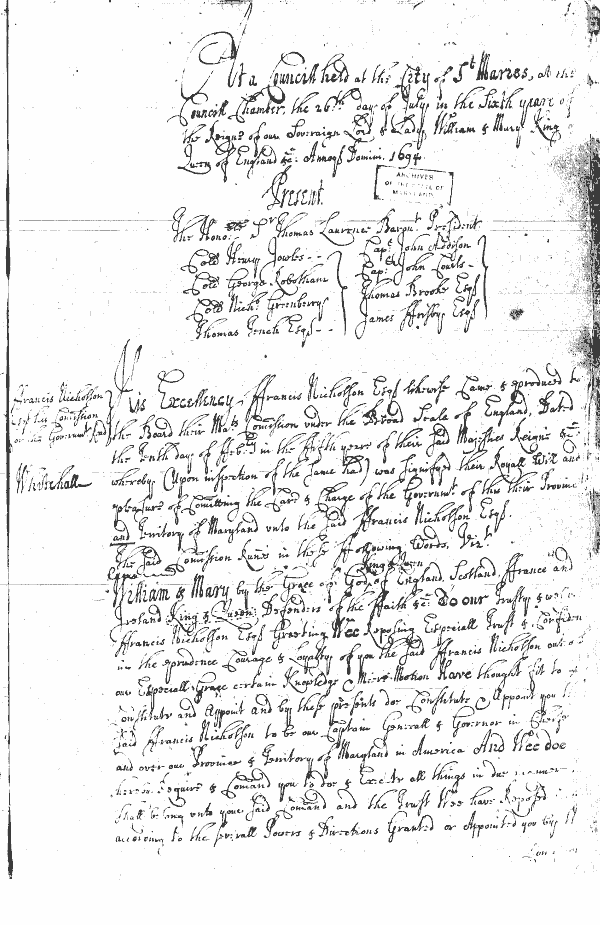 At a Councill held at the City of St Maries, at the
Councill Chamber, the 26th day of July, in the Sixth yeare of
the Reigne of our Soveraign Lord & Lady William & Mary King
Queen of England &c: Annoq Domini. 1694.
ARCHIVES
OF THE STATE OF
MARYLAND
Present.
The Honoble Sr Thomas Laurence Baront President.
Coll Henry Jowles
Capt John Addison
Coll George Robotham
Capt John Courts
Coll Nichs Greenberry
Thomas Brooke Esqr
Thomas Tench Esqr
James Frisby Esqr
Francis Nicholson
Esqr his Comission
for the Governmt Read
His Excellency Ffrancis Nicholson Esqr likewise Came & produced to
the Board their Mats Comission under the Broad Seale of England, Dated
the tenth day of Febry in the fifth yeare of their said Majesties Reigne &c
whereby (Upon inspection of the same had) was signifyed their Royall Will and
Whitehall
pleasure of Comitting the Care & Charge of the Governmt of this their Province
and Territory of Maryland unto the said Ffrancis Nicholson Esqr.
The said Comission Runs in these Following Words, Vizt.
King & Queen
William & Mary by the Grace of God of England, Scotland, Ffrance and
Ireland King & Queen Defenders of the Ffaith &c To our Trusty & well
Ffrancis Nicholson Esqr Greeting Wee reposing Especiall Trust & Confiden
in the prudence Courage & Loyalty of you the said Ffrancis Nicholson out of
our Especiall Grace certain Knowledge & Meer Motion Have thought fit to
Constitute and Appoint and by these presents doe Constitute & Appoint you
said Ffrancis Nicholson to be our Captain Generall & Governor in Cheife
and over our Province & Territory of Maryland in America And Wee doe
hereby Require & Comand you to doe & Execute all things in due manner
shall belong unto your said Comand and the Trust Wee have Reposed
according to the severall Powers & Directions Granted or Appointed you by